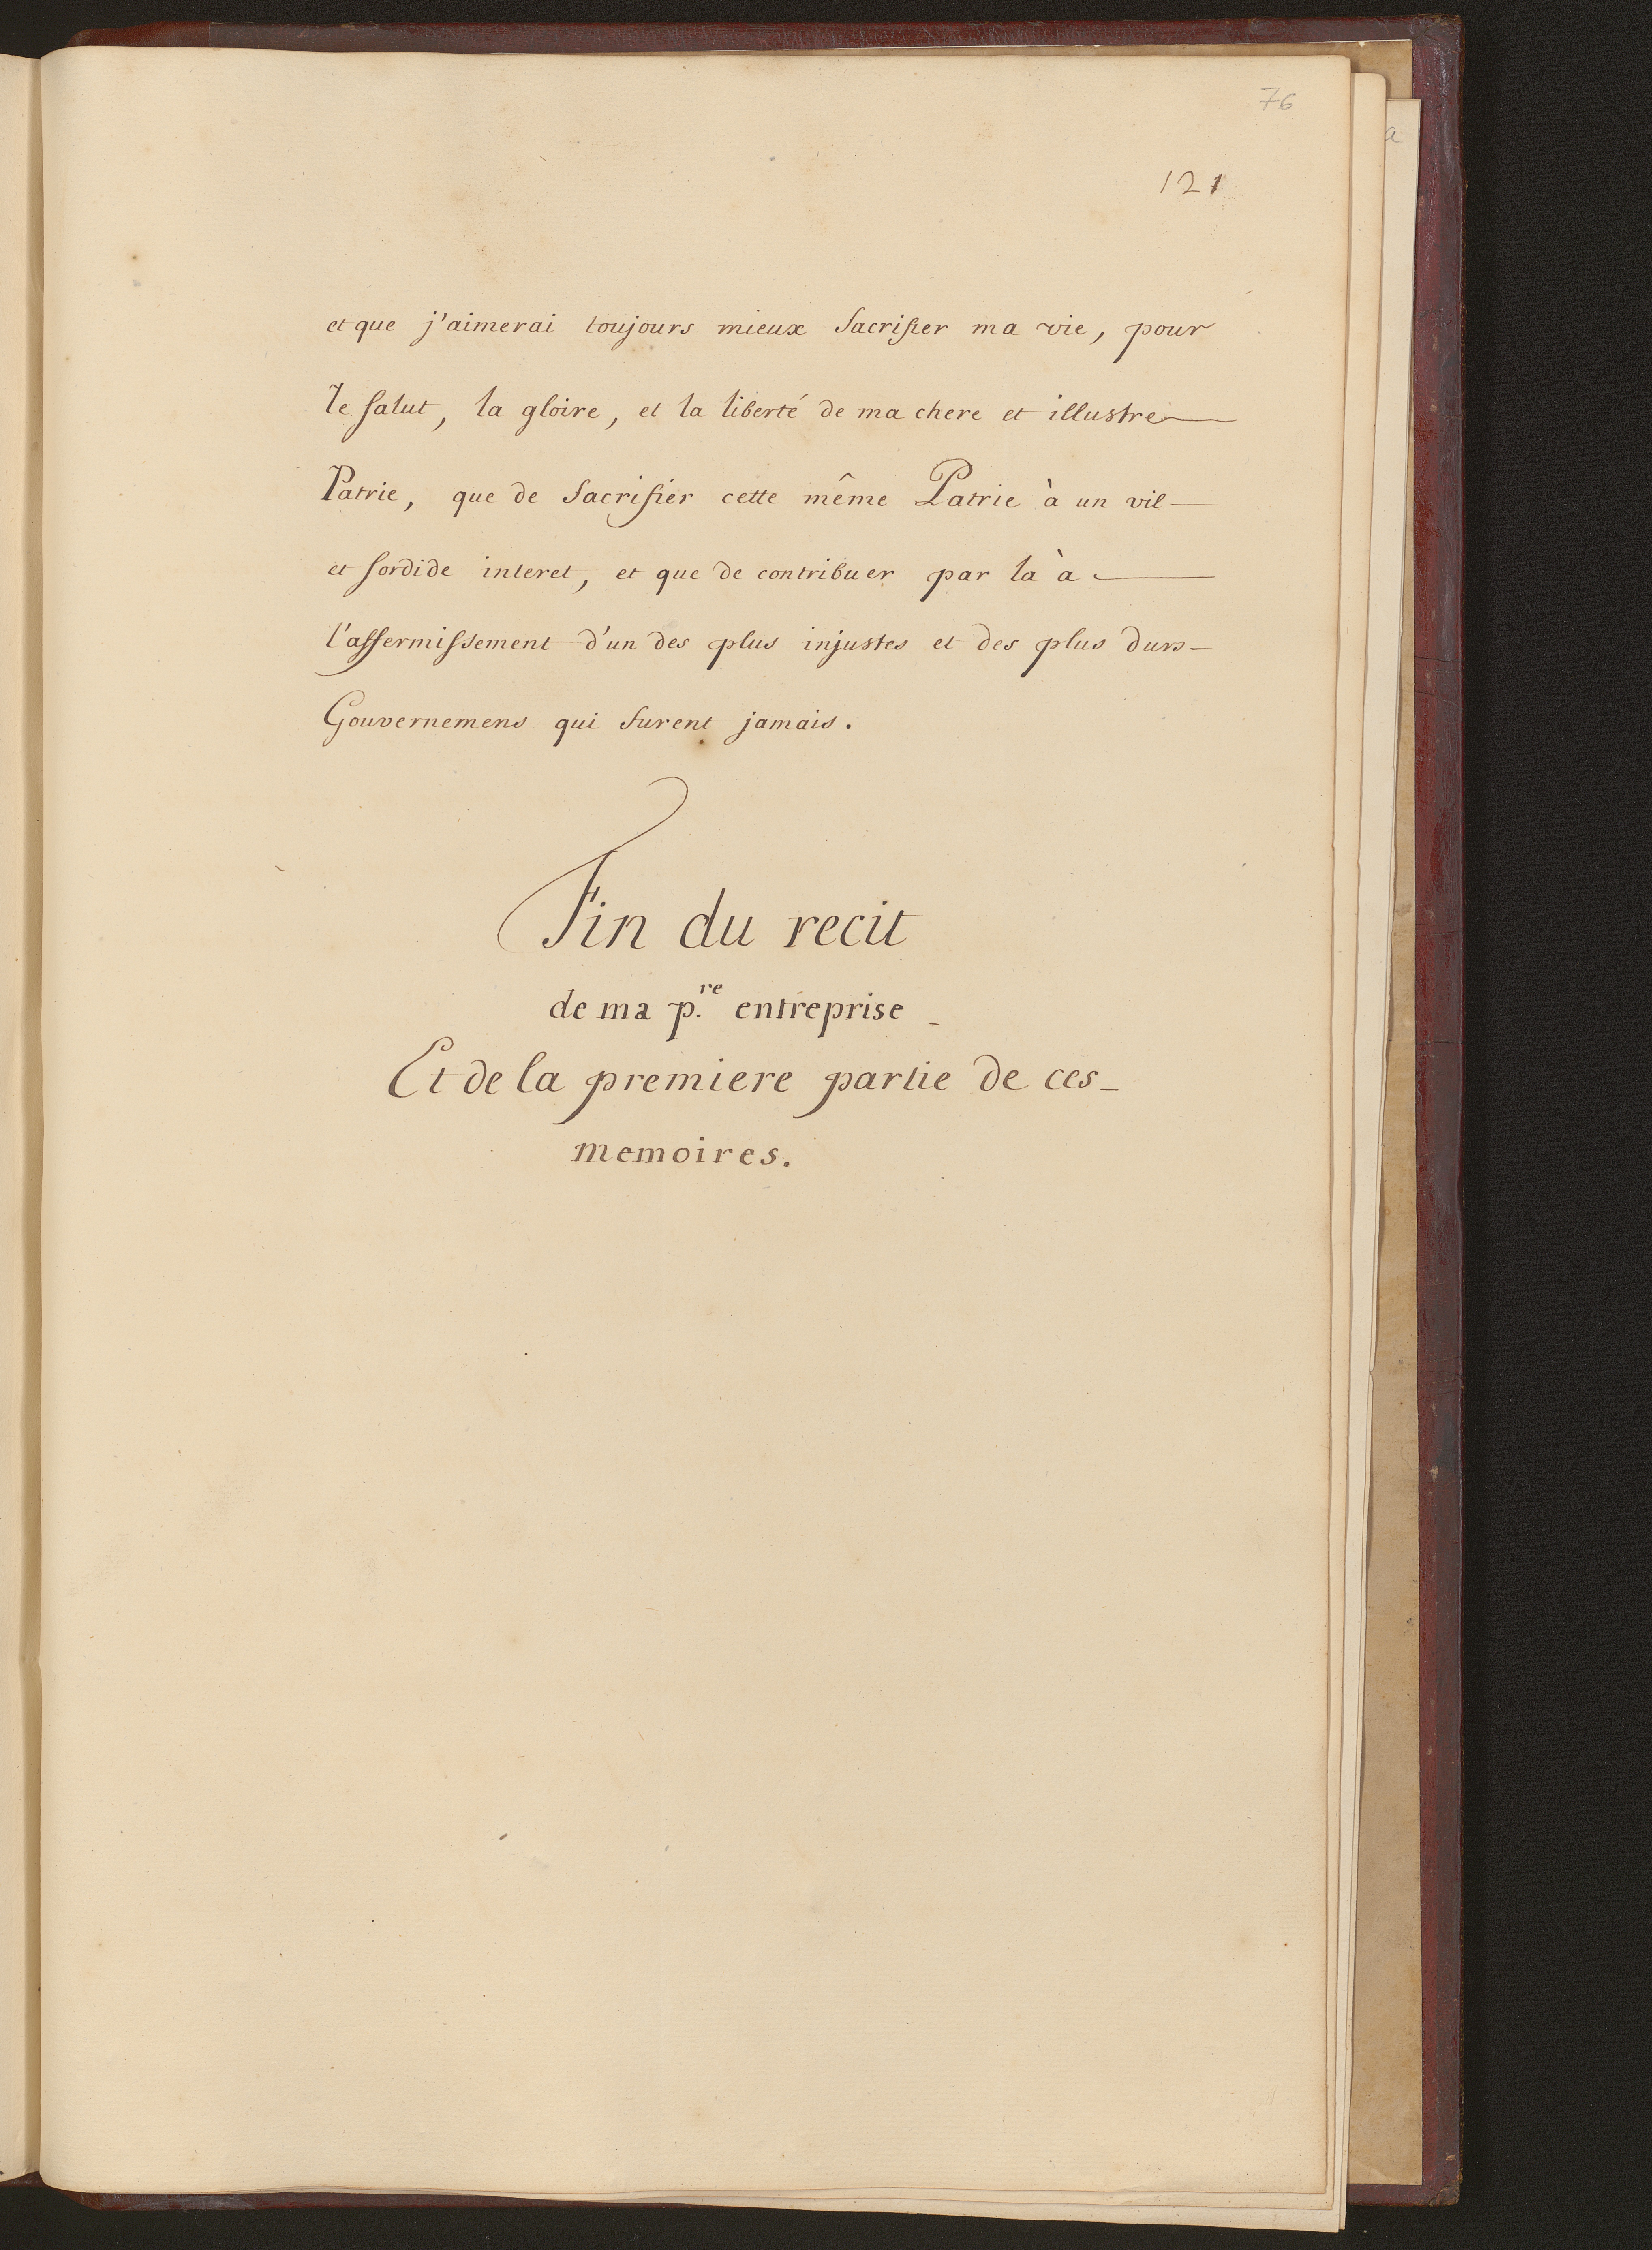 76
121
et que j'aimerai toujours mieux sacrifier ma vie, pour
le salut, la gloire, et la liberté de ma chere et illustre
Patrie, que de sacrifier cette même Patrie à un vil
et sordide interet, et que de contribuer par là à
l'affermissement d'un des plus injustes et des plus durs
Gouvernemens qui furent jamais.
Fin du recit
de ma p.re entreprise
Et de la premiere partie de ces
memoires.